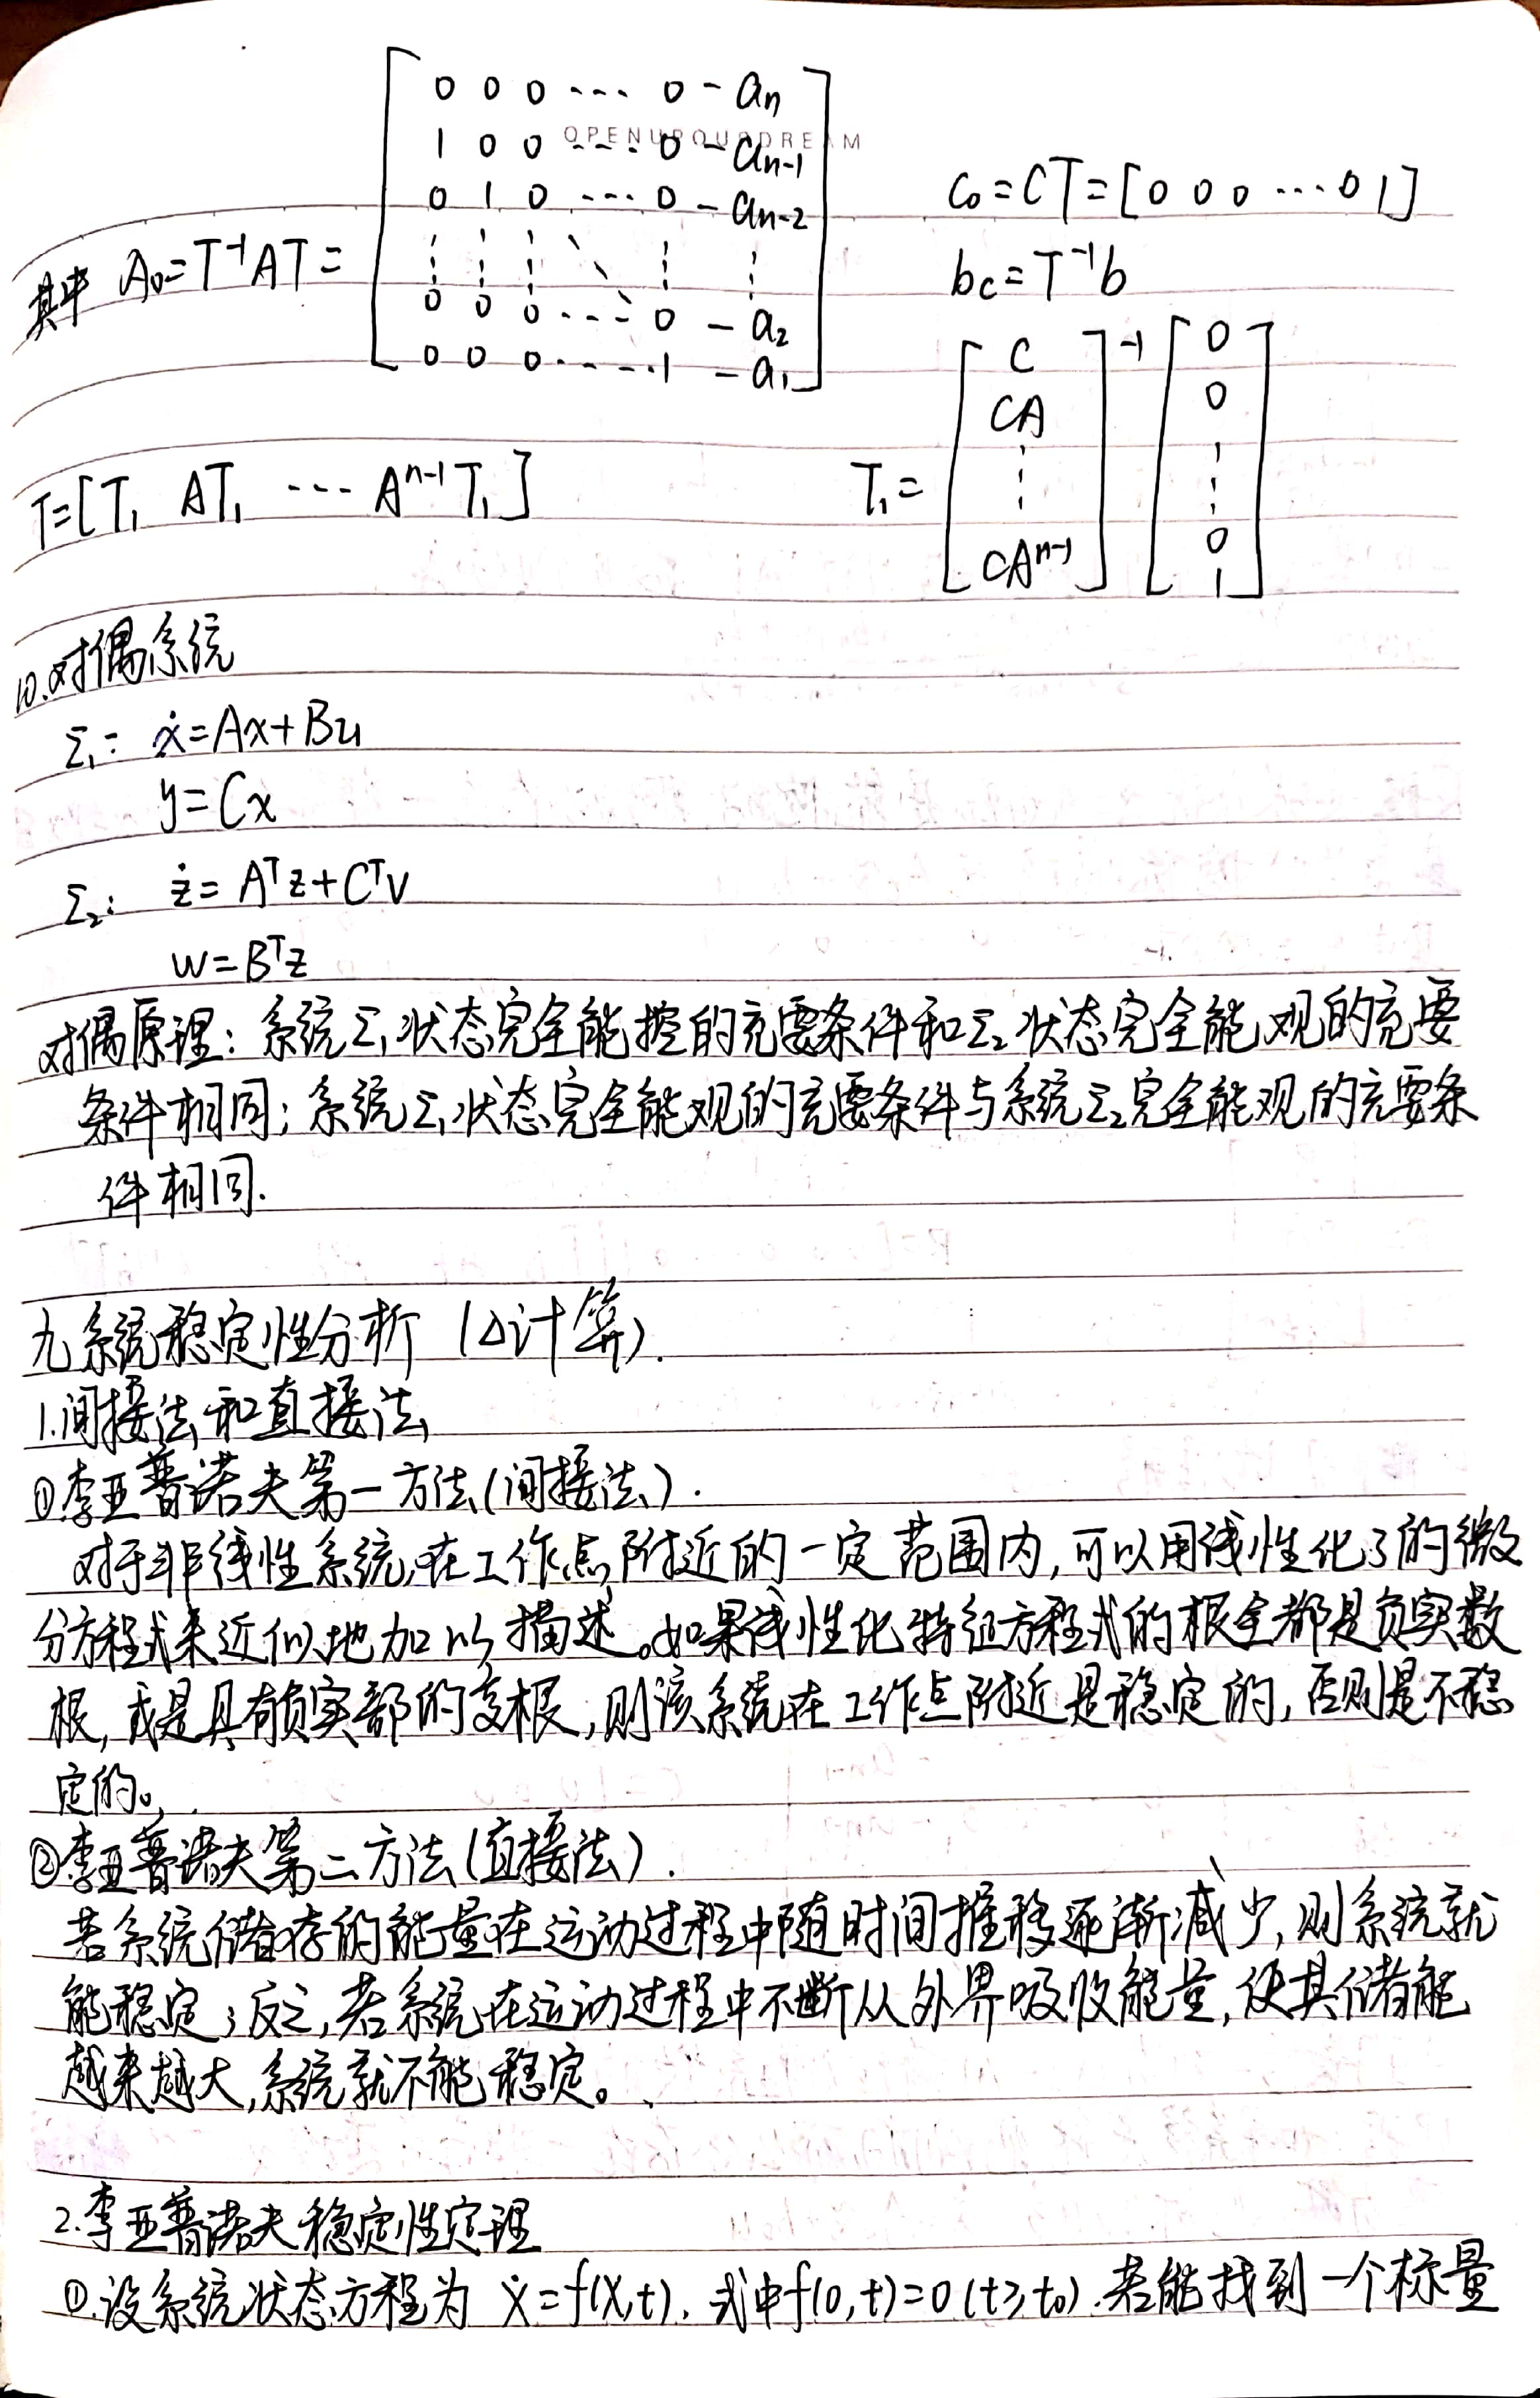 OPENUPOURDREAM
其中 A₀=T⁻¹AT=
[0 0 0 ··· 0 -aₙ
1 0 0 ··· 0 -aₙ₋₁
0 1 0 ··· 0 -aₙ₋₂
⋮ ⋮ ⋮ ⋱ ⋮ ⋮
0 0 0 ··· 0 -a₂
0 0 0 ··· 1 -a₁]
C₀=CT=[0 0 0 ··· 0 1]
bc=T⁻¹b
T=[T₁ AT₁ ··· Aⁿ⁻¹T₁]
T₁=[C CA ⋮ CAⁿ⁻¹]⁻¹ [0 0 ⋮ 0 1]
10.对偶系统
Σ₁: ẋ=Ax+Bu
y=Cx
Σ₂: ż=Aᵀz+Cᵀv
w=Bᵀz
对偶原理:系统Σ₁状态完全能控的充要条件和Σ₂状态完全能观的充要
条件相同;系统Σ₁状态完全能观的充要条件与系统Σ₂完全能观的充要条
件相同.
九系统稳定性分析 (△计算).
1.间接法和直接法
①李亚普诺夫第一方法(间接法).
对于非线性系统,在工作点附近的一定范围内,可以用线性化了的微
分方程式来近似地加以描述。如果线性化特征方程式的根全都是负实数
根,或是具有负实部的复根,则该系统在工作点附近是稳定的,否则是不稳
定的。
②李亚普诺夫第二方法(直接法).
若系统储存的能量在运动过程中随时间推移逐渐减少,则系统就
能稳定;反之,若系统在运动过程中不断从外界吸收能量,使其储能
越来越大,系统就不能稳定。
2.李亚普诺夫稳定性定理
①.设系统状态方程为 ẋ=f(x,t),式中f(0,t)=0(t≥t₀).若能找到一个标量